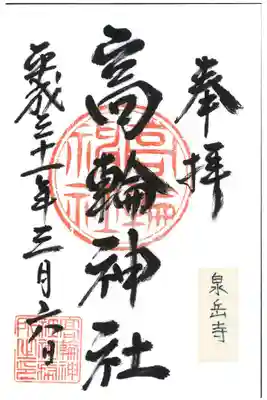 奉拝
高輪神社
平成二十一年三月六日
泉岳寺
高輪神社